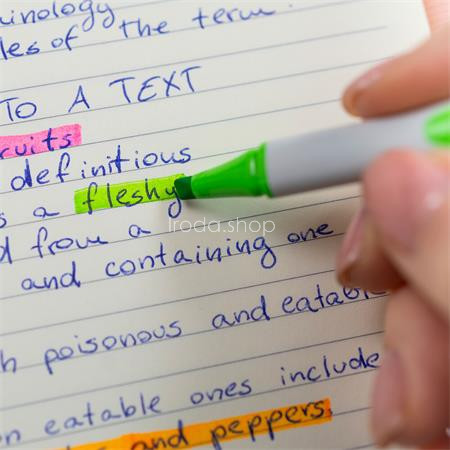 inology
les of the term.
TO A TEXT
ruits
definitious
s a fleshy
d from a
and containing one
h poisonous and eatable
n eatable ones include
and peppers.
Iroda.shop